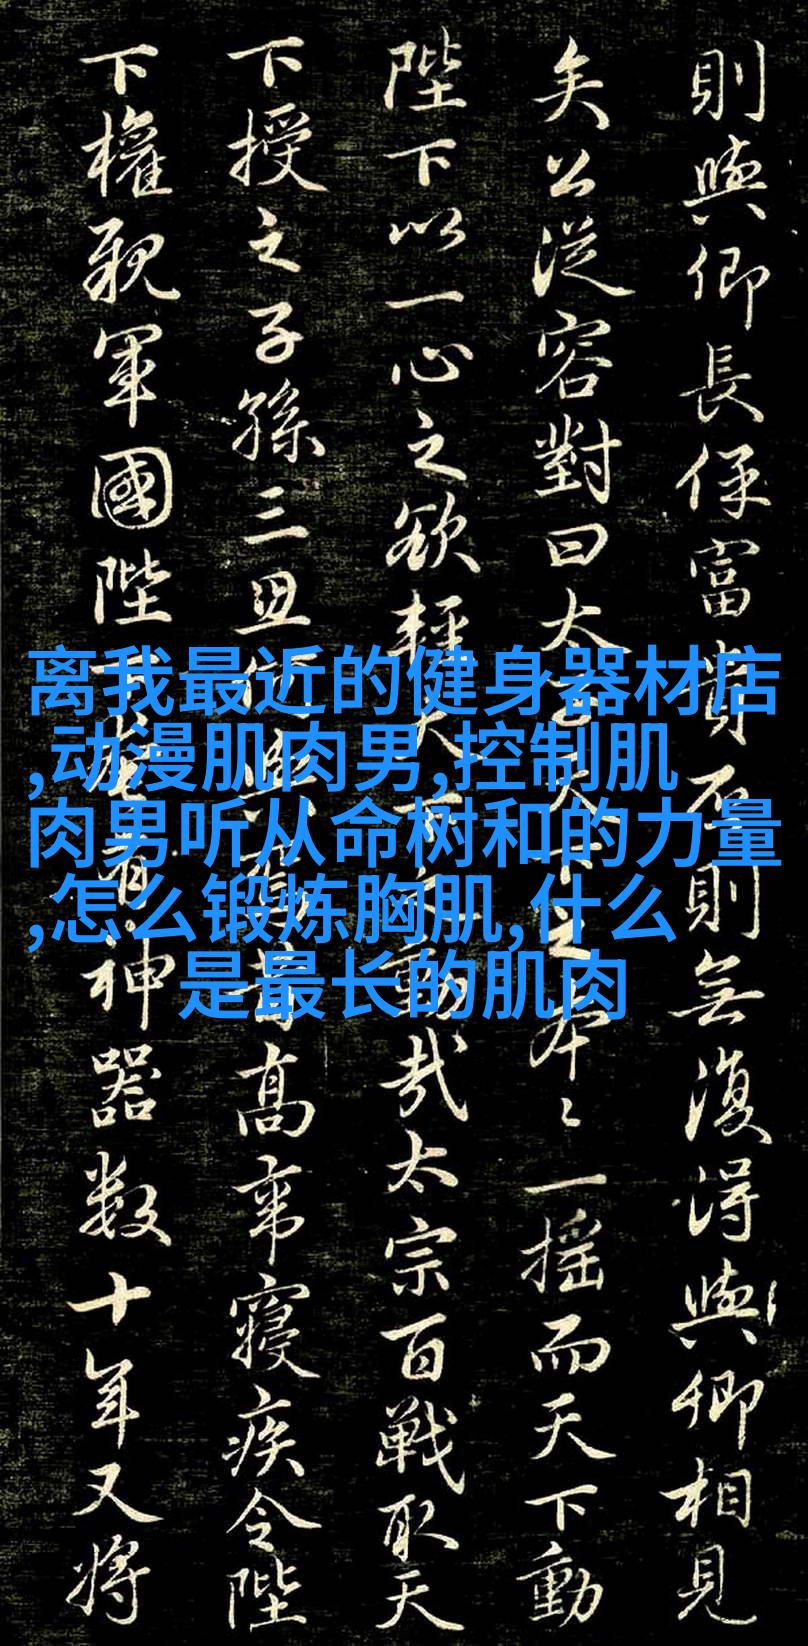 則與卿長保富貴不則無復得與卿相見
矣公從容對曰太子天下之本々一摇而天下動
陛下以一心之欲輕天下之動哉太宗百戰取天
下授之子孫三
高帝寢疾令陛
下權親軍國陛下
神器数十年又将
离我最近的健身器材店
,动漫肌肉男,控制肌
肉男听从命树和的力量
,怎么锻炼胸肌,什么
是最长的肌肉